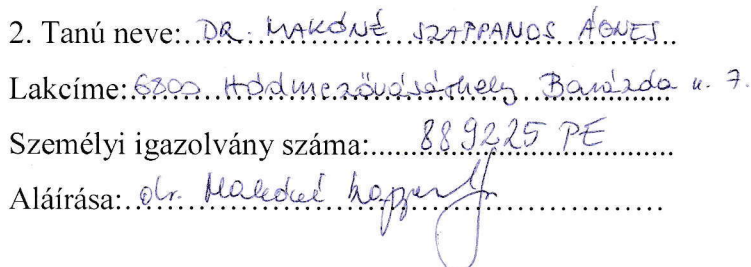 2. Tanú neve: DR. MAKÓNÉ SZAPPANOS ÁGNES
Lakcíme: 6800 Hódmezővásárhely Barázda u. 7.
Személyi igazolvány száma: 889225 PE
Aláírása: dr. Makóné